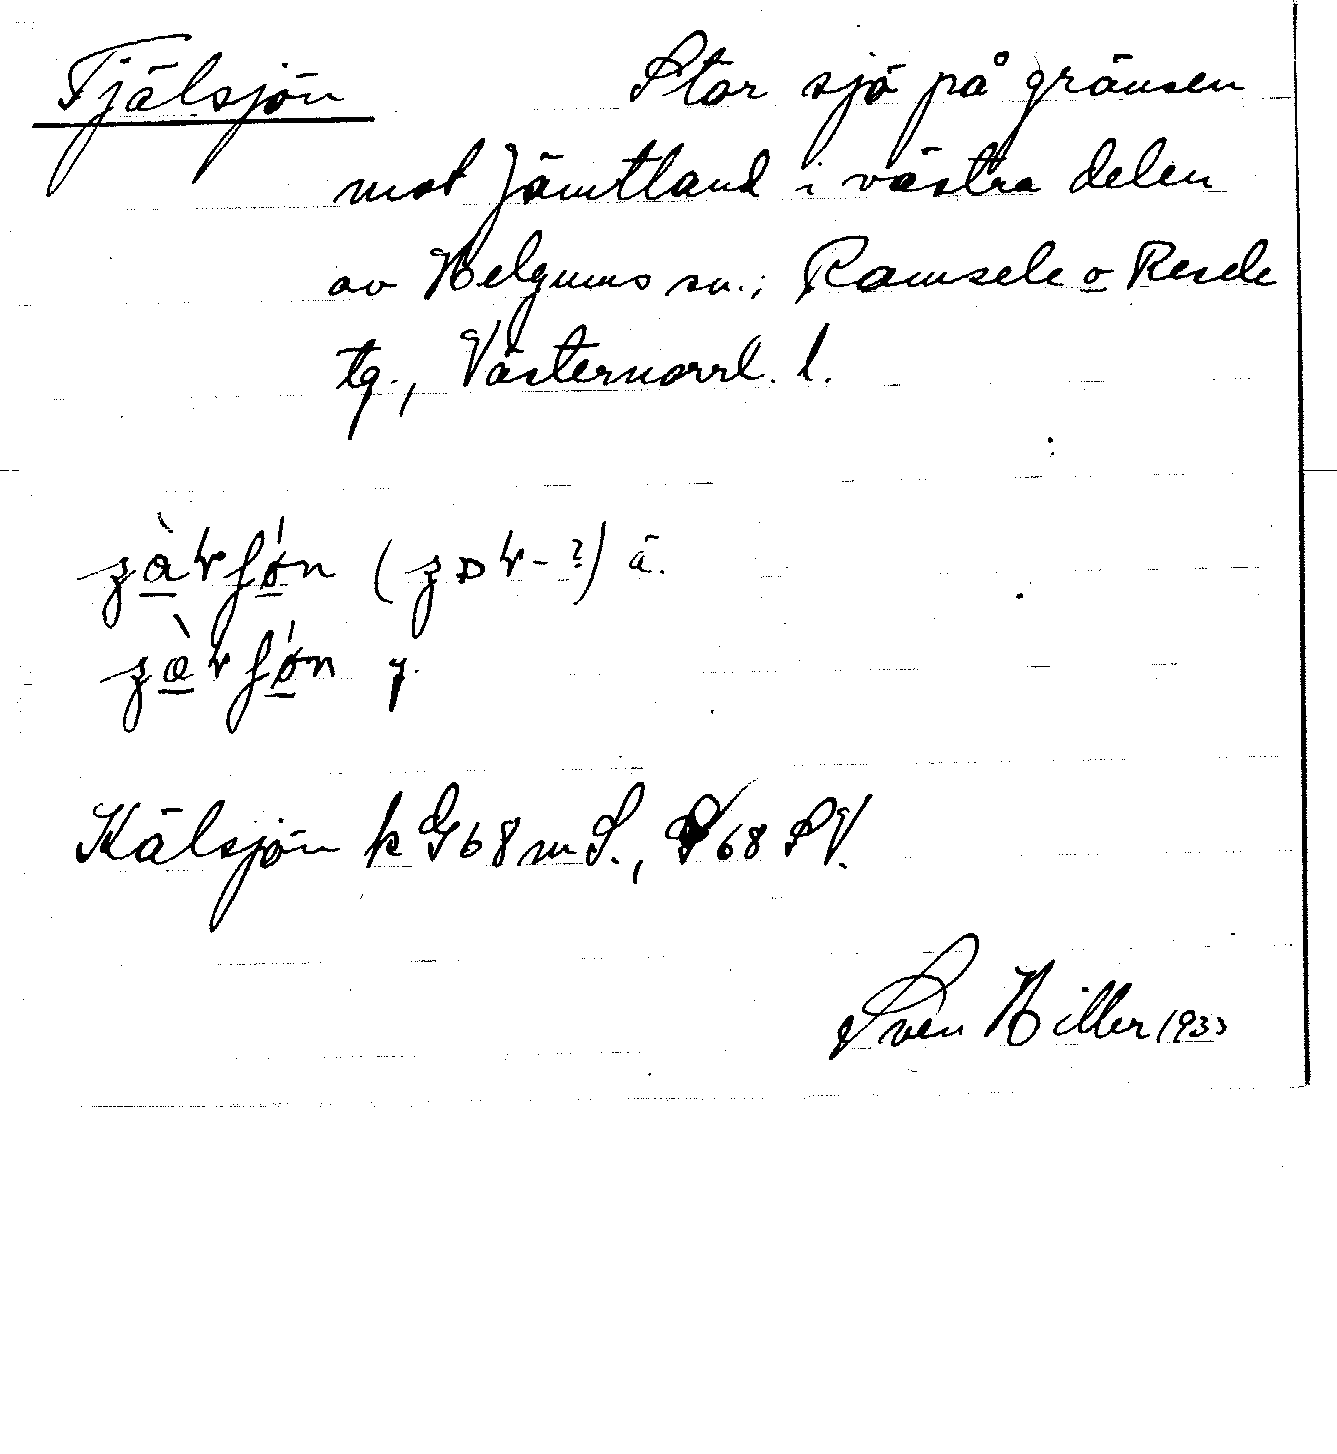 Fjälsjön Stor sjö på gränsen
mot Jämtland i västra delen
av Helgums sn.; Ramsele o Resele
tg., Västernorrl. l.
ä.
y.
Kälsjön k G68 m S., 68 SV.
Sven Hiller 1933